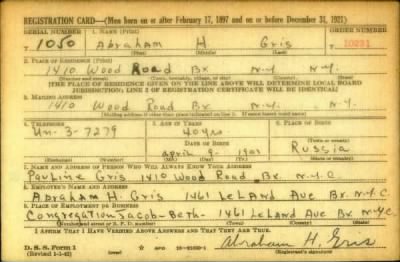 REGISTRATION CARD—(Men born on or after February 17, 1897 and on or before December 31, 1921)
SERIAL NUMBER 1. NAME (Print) ORDER NUMBER
T 1050 Abraham H Gris T 10231
(First) (Middle) (Last)
2. PLACE OF RESIDENCE (Print)
1410 Wood Road Bx. N.Y. N.Y.
(Number and street) (Town, township, village, or city) (County) (State)
[THE PLACE OF RESIDENCE GIVEN ON THE LINE ABOVE WILL DETERMINE LOCAL BOARD
JURISDICTION; LINE 2 OF REGISTRATION CERTIFICATE WILL BE IDENTICAL]
3. MAILING ADDRESS
1410 Wood Road Bx. N.Y. N.Y.
[Mailing address if other than place indicated on line 2. If same insert word same]
4. TELEPHONE 5. AGE IN YEARS 6. PLACE OF BIRTH
Un-3-7279 40 yrs
DATE OF BIRTH (Town or county)
April 9 1901 Russia
(Exchange) (Number) (Mo.) (Day) (Yr.) (State or country)
7. NAME AND ADDRESS OF PERSON WHO WILL ALWAYS KNOW YOUR ADDRESS
Pauline Gris 1410 Wood Road Bx. N.Y.C.
8. EMPLOYER'S NAME AND ADDRESS
Abraham H. Gris 1461 Leland Ave Bx. N.Y.C.
9. PLACE OF EMPLOYMENT OR BUSINESS
Congregation Jacob-Beth- 1461 Leland Ave Bx N.Y.C.
(Number and street or R. F. D. number) (Town) (County) (State)
I AFFIRM THAT I HAVE VERIFIED ABOVE ANSWERS AND THAT THEY ARE TRUE.
D. S. S. Form 1
(Revised 1-1-42) GPO Abraham H. Gris
(Registrant's signature)